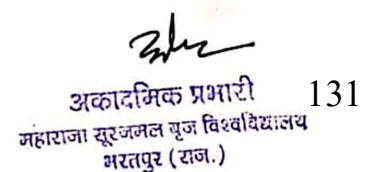 अकादमिक प्रभारी 131
महाराजा सूरजमल बृज विश्वविद्यालय
भरतपुर (राज.)